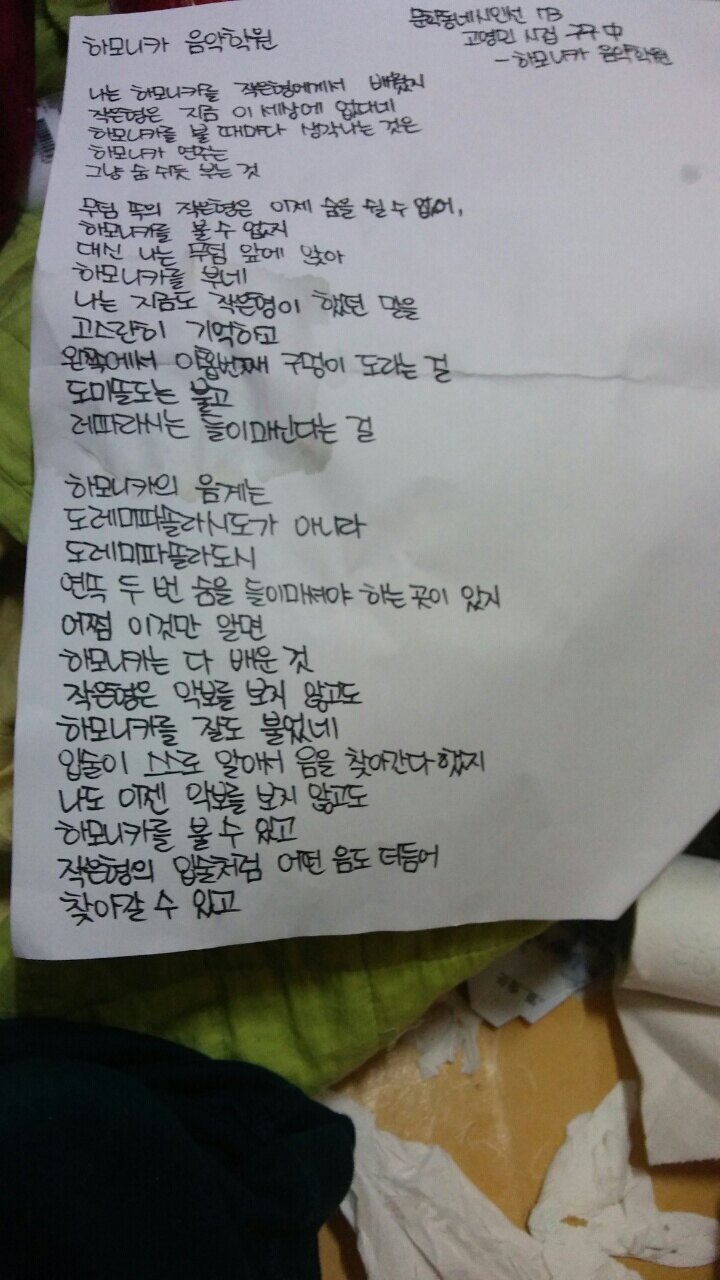 하모니카 음악학원
문학동네시인선 73
고영민 시집 구구 中
- 하모니카 음악학원
나는 하모니카를 작은형에게서 배웠지
작은형은 지금 이 세상에 없다네
하모니카를 불 때마다 생각나는 것은
하모니카 연주는
그냥 숨 쉬듯 부는 것
무덤 쪽의 작은형은 이제 숨을 쉴 수 없어,
하모니카를 불 수 없지
대신 나는 무덤 앞에 앉아
하모니카를 부네
나는 지금도 작은형이 했던 말을
고스란히 기억하고
왼쪽에서 아홉번째 구멍이 도라는 걸
도미쏠도는 불고
레파라시는 들이마신다는 걸
하모니카의 음계는
도레미파쏠라시도가 아니라
도레미파쏠라도시
연뜩 두 번 숨을 들이마셔야 하는 곳이 있지
어쩜 이것만 알면
하모니카는 다 배운 것
작은형은 악보를 보지 않고도
하모니카를 잘도 불었네
입술이 스스로 알아서 음을 찾아간다 했지
나도 이젠 악보를 보지 않고도
하모니카를 불 수 있고
작은형의 입술처럼 어떤 음도 더듬어
찾아갈 수 있고